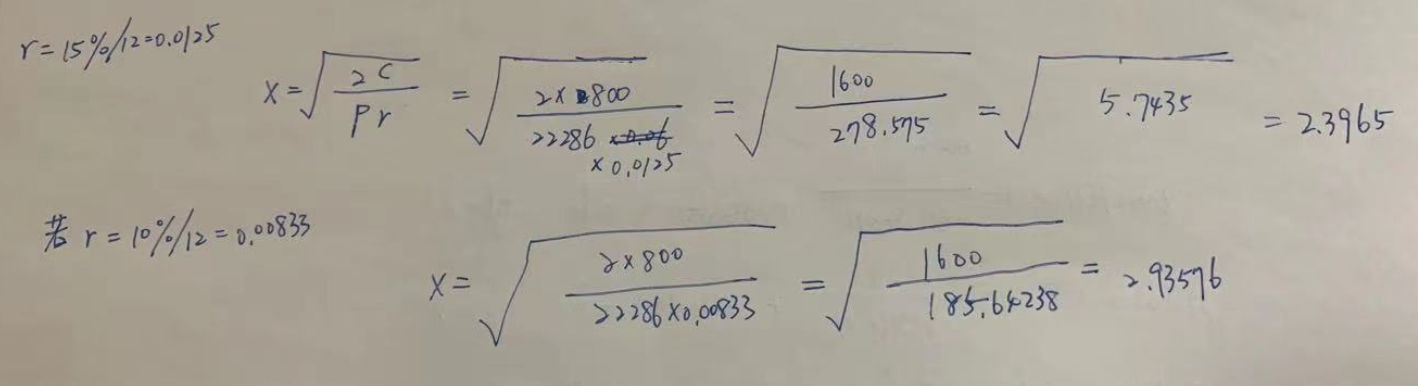 r = 15%/12 = 0.0125
x = √(2C / Pr) = √(2×800 / 22286 ×0.0125) = √(1600 / 278.575) = √5.7435 = 2.3965
若 r = 10%/12 = 0.00833
x = √(2×800 / 22286×0.00833) = √(1600 / 185.64238) = 2.93576